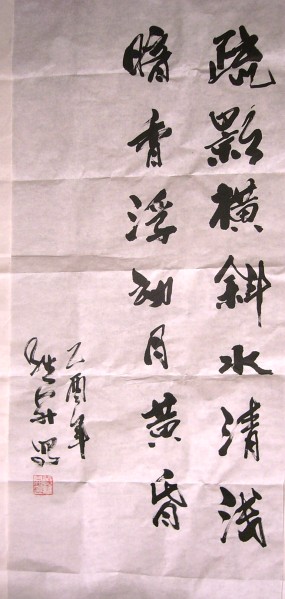 疏影横斜水清浅
暗香浮动月黄昏
乙酉年